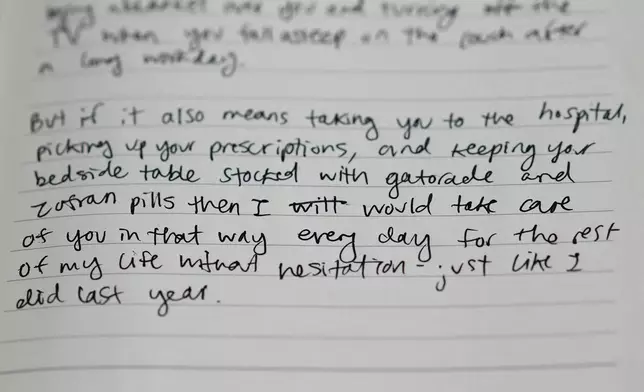 blanket over you and turning off the
TV when you fall asleep on the couch after
a long workday.
But if it also means taking you to the hospital,
picking up your prescriptions, and keeping your
bedside table stocked with gatorade and
zofran pills then I will would take care
of you in that way every day for the rest
of my life without hesitation - just like I
did last year.